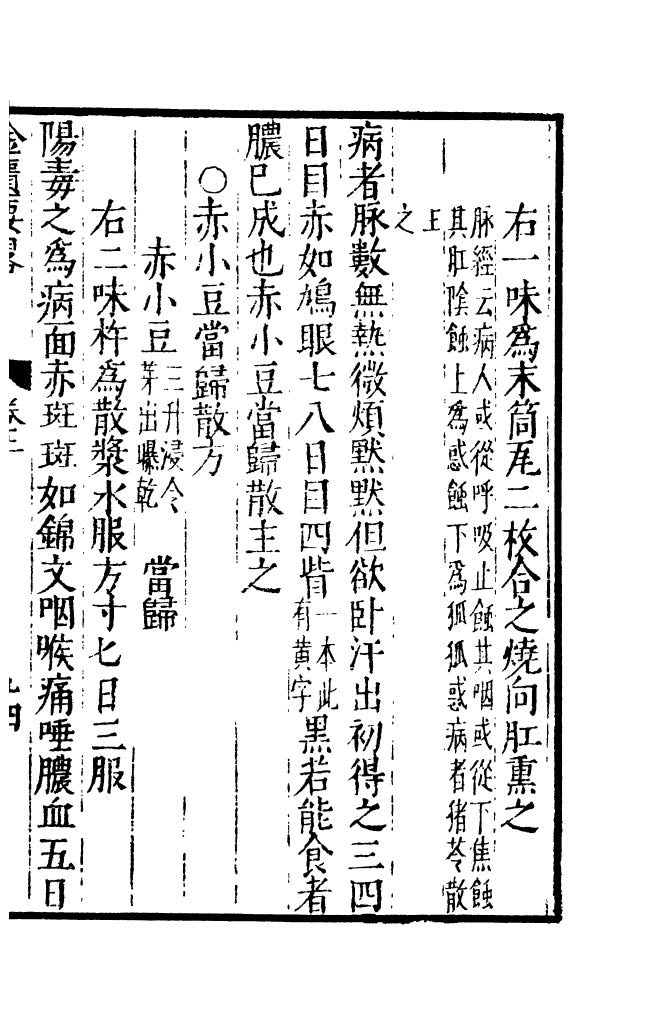 右一味爲末筒瓦二枚合之燒向肛熏之
脉經云病人或從呼吸止蝕其咽或從下焦蝕
其肛陰蝕上爲惑蝕下爲狐狐惑病者猪苓散
主
之
病者脉數無熱微煩黙黙但欲卧汗出初得之三四
日目赤如鳩眼七八日目四眥一本此有黄字黑若能食者
膿已成也赤小豆當歸散主之
○赤小豆當歸散方
赤小豆三升浸令芽出曝乾 當歸
右二味杵爲散漿水服方寸匕日三服
陽毒之爲病面赤斑斑如錦文咽喉痛唾膿血五日